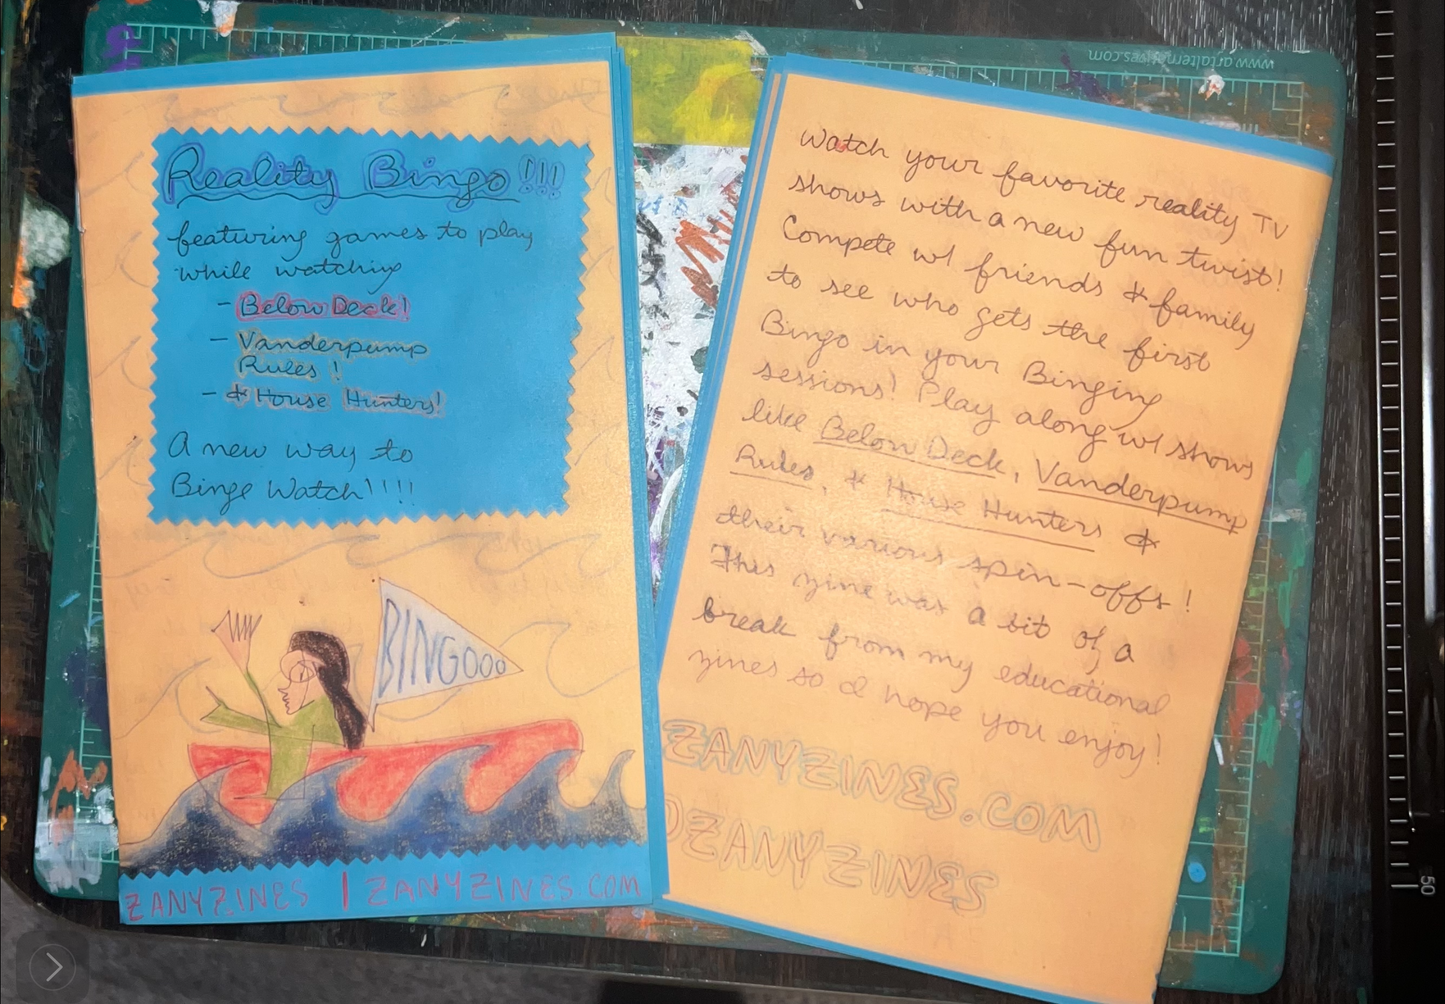 www.artalternatives.com
Reality Bingo!!!
featuring games to play
while watching
- Below Deck!
- Vanderpump
Rules!
- & House Hunters!
A new way to
Binge Watch!!!!
BINGOOOO
ZANYZINES | ZANYZINES.COM
Watch your favorite reality TV
shows with a new fun twist!
Compete w/ friends & family
to see who gets the first
Bingo in your Binging
sessions! Play along w/ shows
like Below Deck, Vanderpump
Rules, & House Hunters &
their various spin-offs!
This zine was a bit of a
break from my educational
zines so I hope you enjoy!
ZANYZINES.COM
@ZANYZINES
50